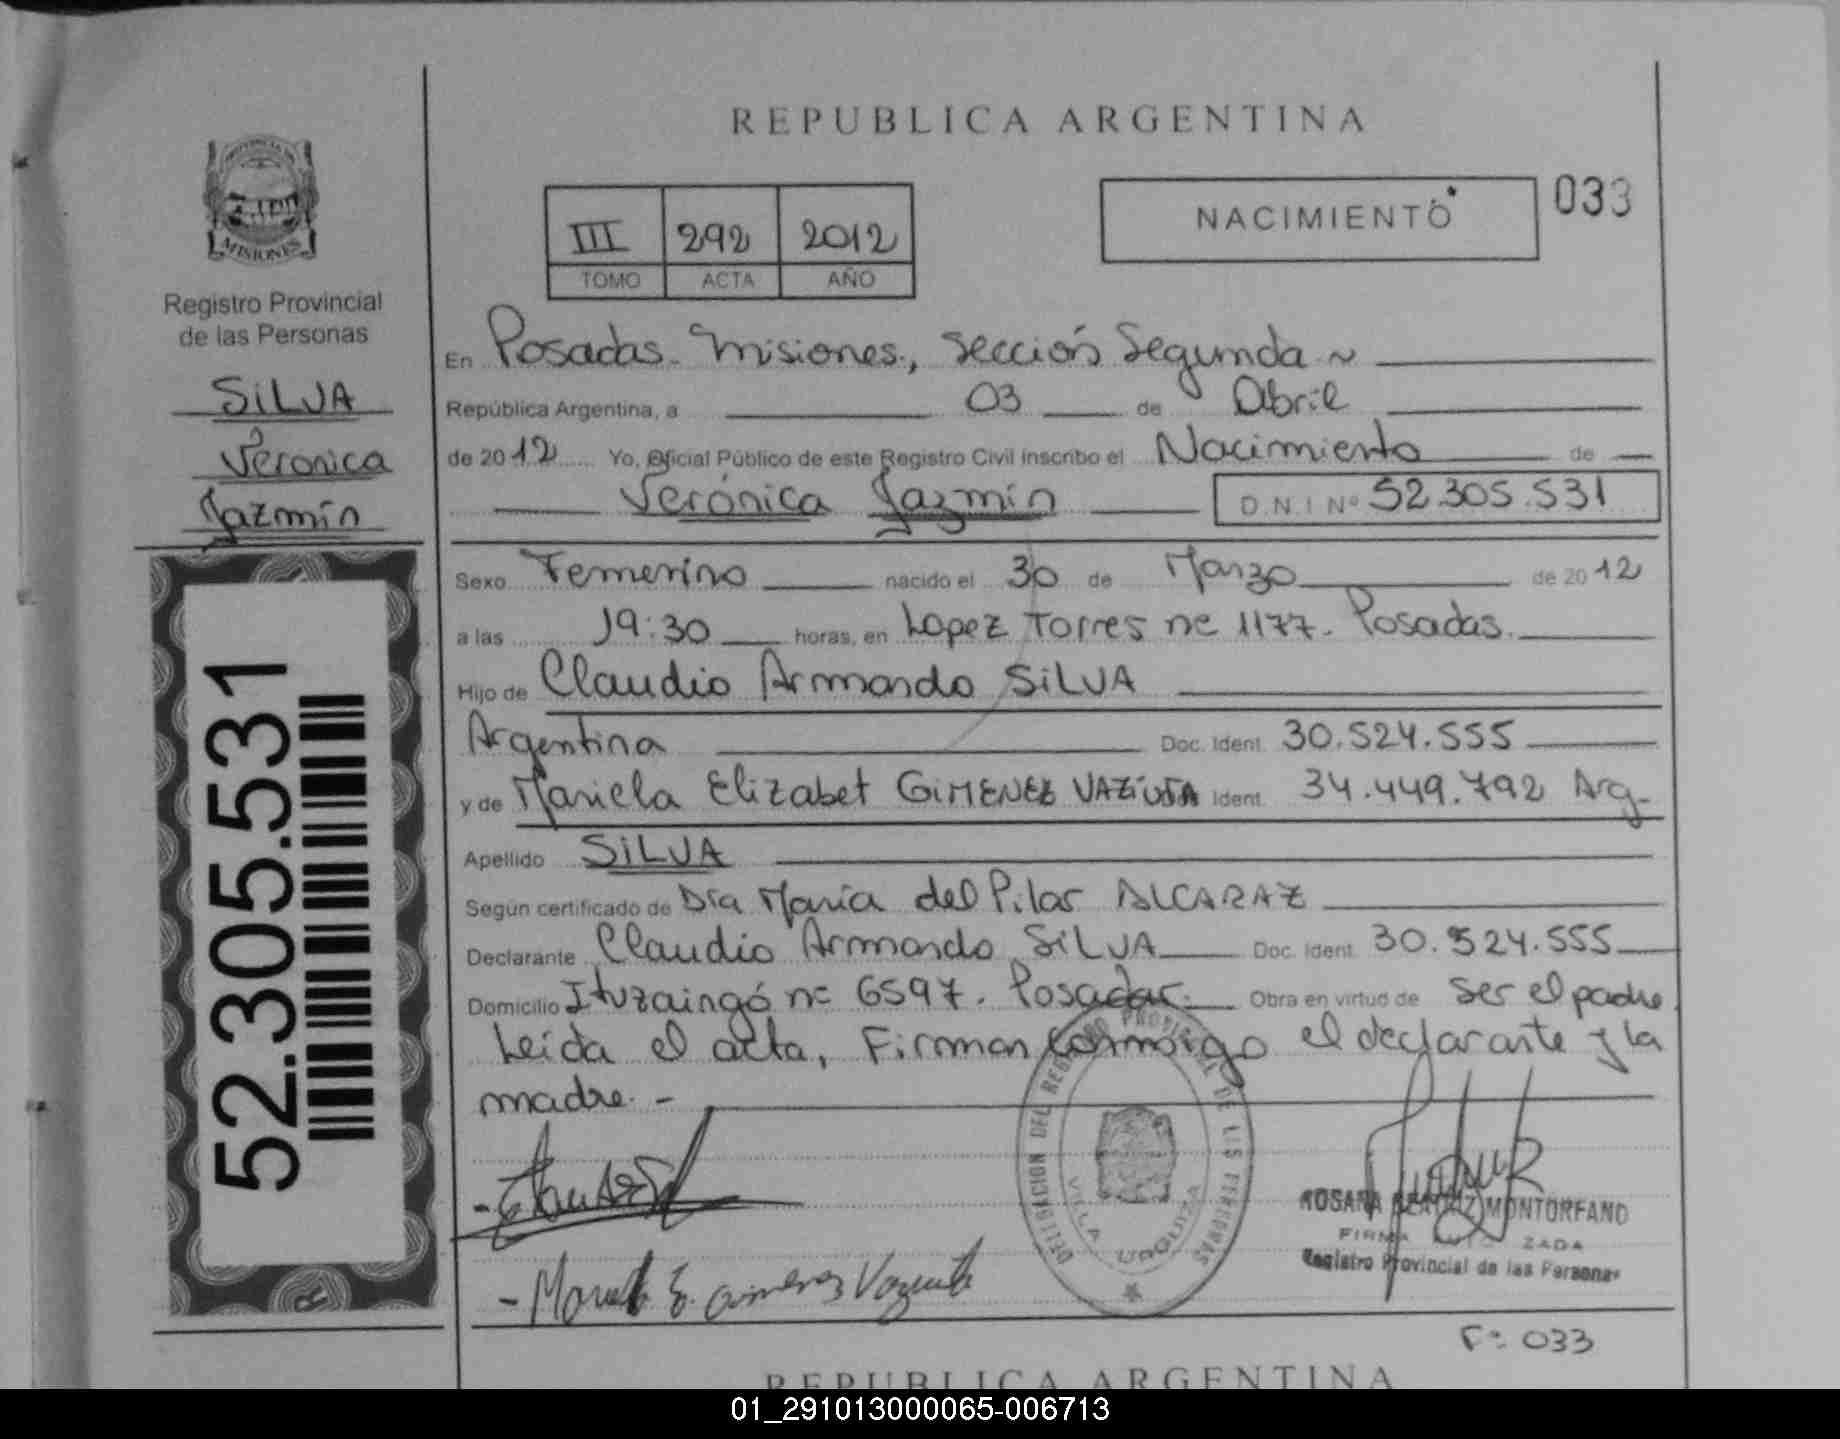 REPUBLICA ARGENTINA
PROVINCIA DE
MISIONES
Registro Provincial
de las Personas
SILVA
Verónica
Jazmín
52.305.531
III 292 2012
TOMO ACTA AÑO
NACIMIENTO 033
En Posadas - Misiones, Sección Segunda
República Argentina, a 03 de Abril
de 2012 Yo, Oficial Público de este Registro Civil inscribo el Nacimiento de
Verónica Jazmín D.N.I Nº 52.305.531
Sexo Femenino nacido el 30 de Marzo de 2012
a las 19:30 horas, en Lopez Torres nº 1177. Posadas.
Hijo de Claudio Armando SILVA
Argentina Doc. Ident. 30.524.555
y de Mariela Elizabet GIMENEZ Ident. 34.449.792 Arg.
Apellido SILVA
Según certificado de Dra María del Pilar ALCARAZ
Declarante Claudio Armando SILVA Doc. Ident. 30.524.555
Domicilio Ituzaingó nº 6597. Posadas. Obra en virtud de ser el padre.
Leída el acta, Firman conmigo el declarante y la
madre. -
DELEGACION DEL REGISTRO PROVINCIAL DE LAS PERSONAS
VILLA URQUIZA
ROSANA BEATRIZ MONTORFANO
FIRMA AUTORIZADA
Registro Provincial de las Personas
Fº 033
REPUBLICA ARGENTINA
01_291013000065-006713